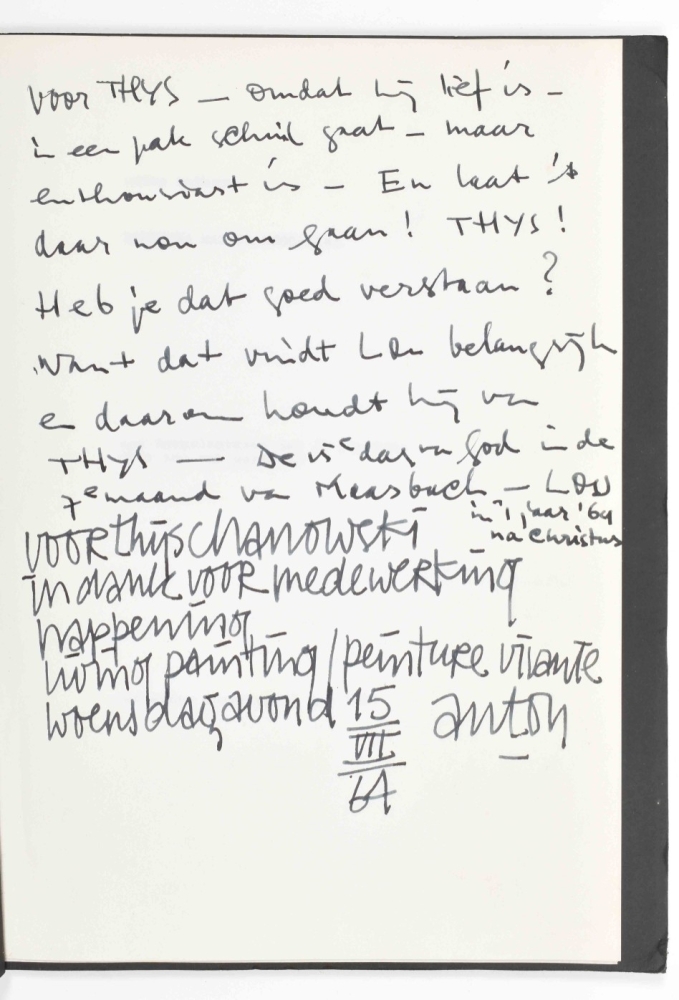 voor THYS — omdat hij lief is —
in een pak schuil gaat — maar
enthousiast is — En laat 't
daar nou om gaan! THYS!
Heb je dat goed verstaan?
want dat vindt Lou belangrijk
en daarom houdt hij van
THYS — De 15e dag van God in de
7e maand van Maasbach — LOU
in 't jaar '64
na Christus
voor thijs chanowski
in dank voor medewerking
happening
living painting / peinture vivante
woensdagavond 15 anton
VII
64